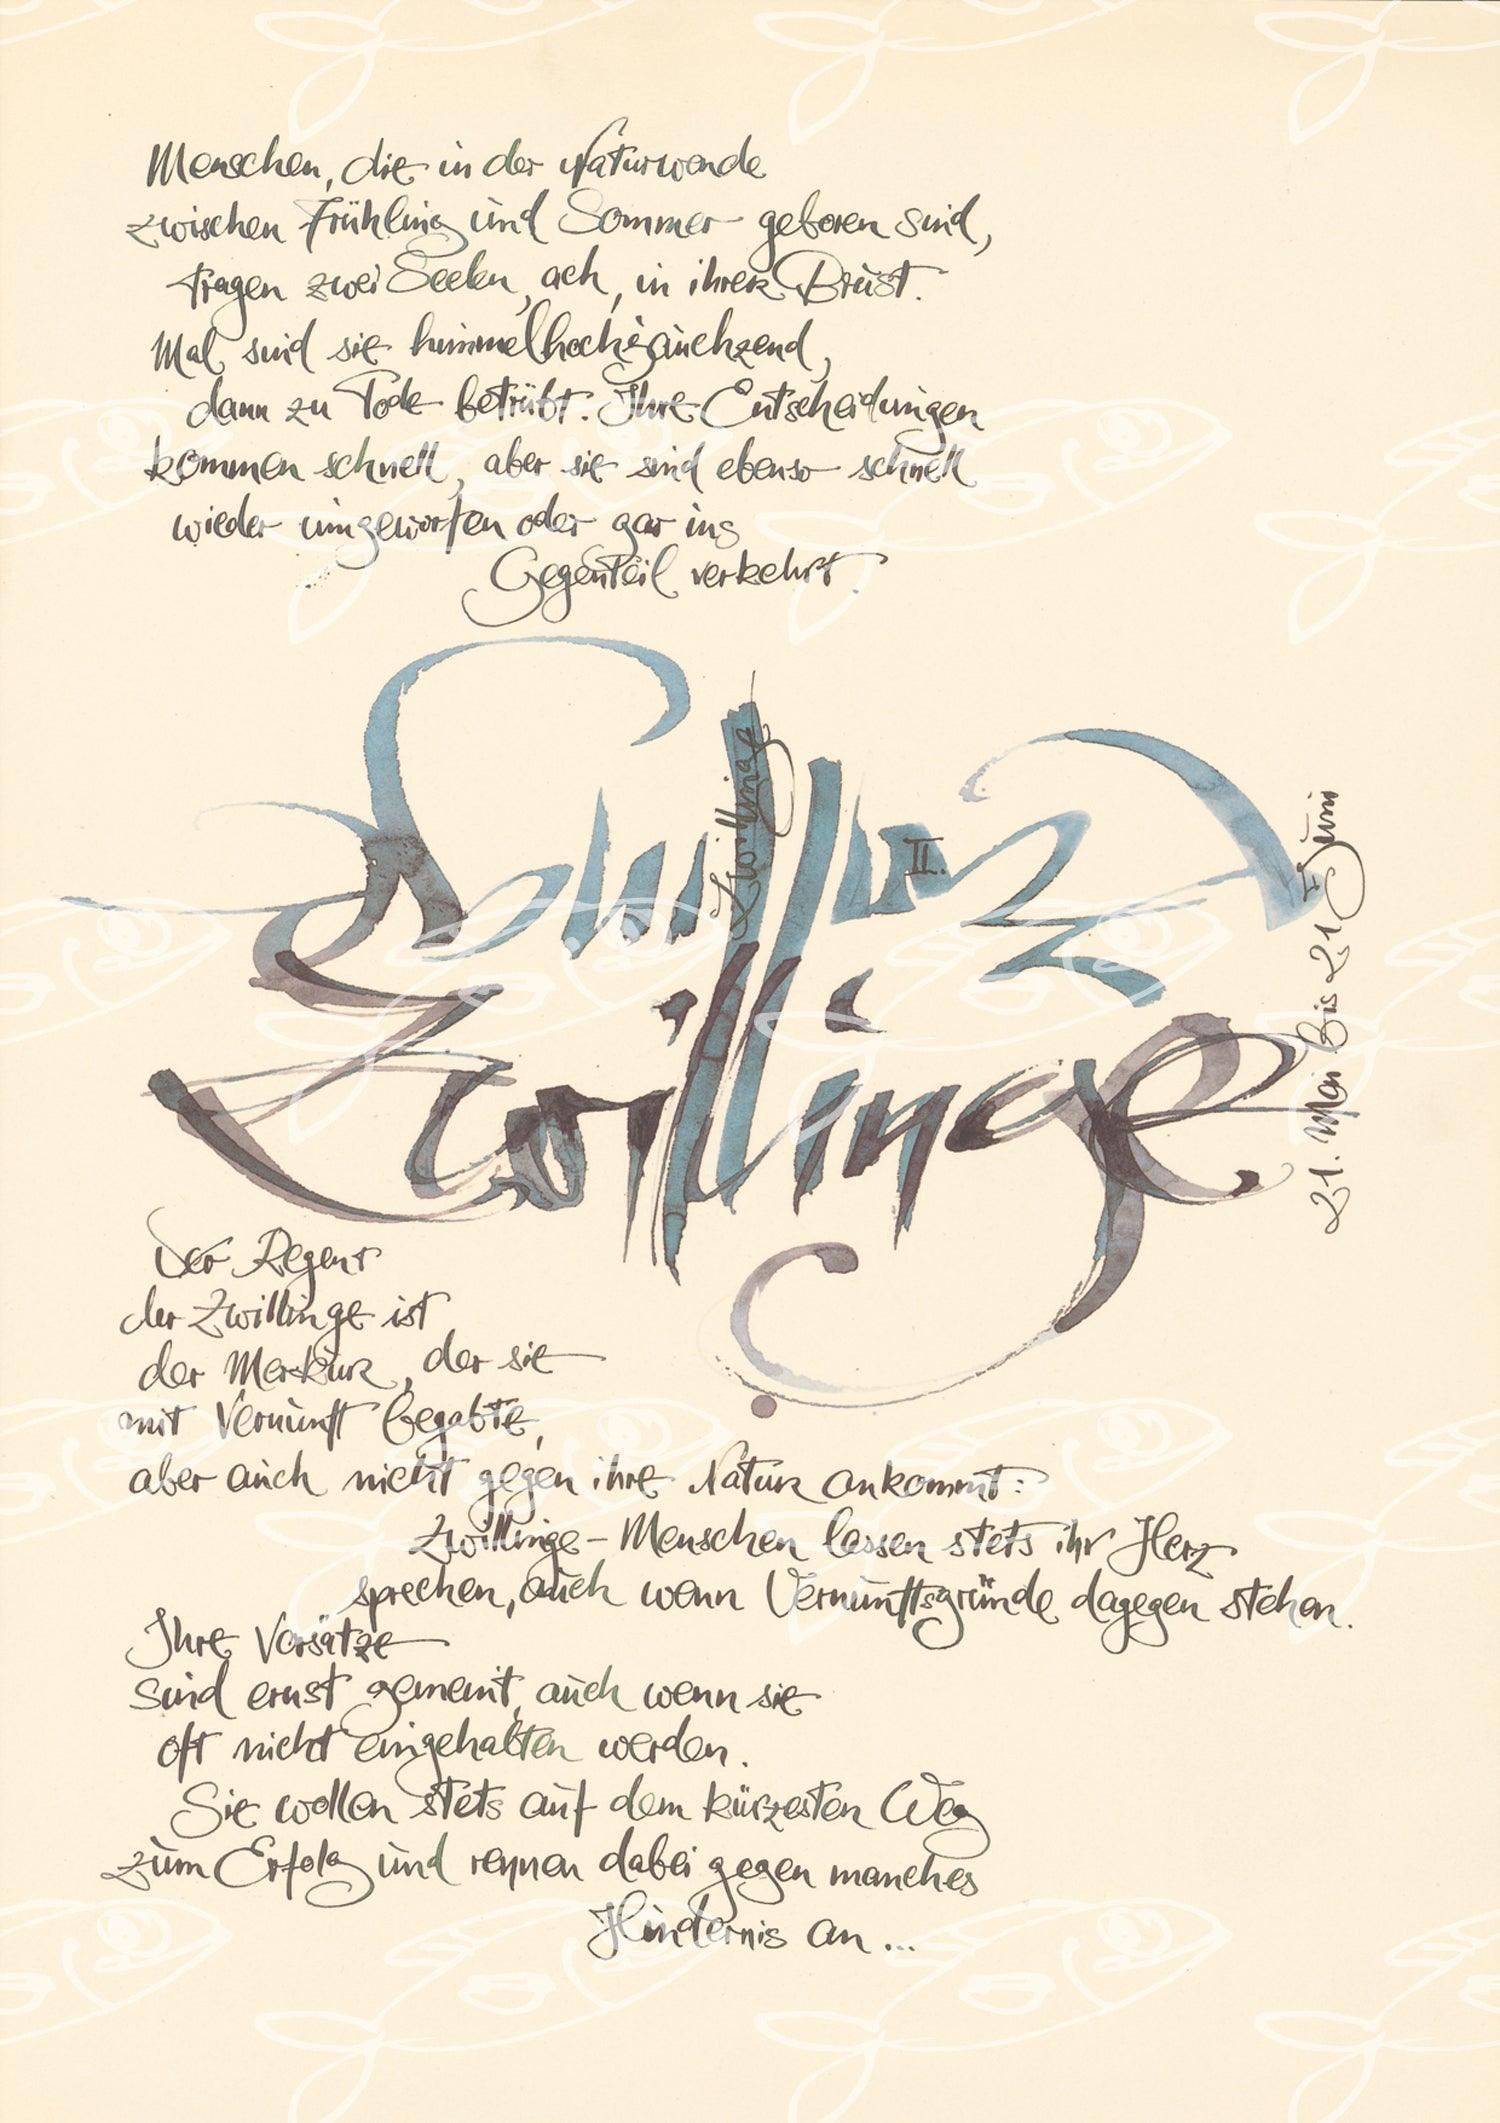 Menschen, die in der Naturwende
zwischen Frühling und Sommer geboren sind,
tragen zwei Seelen, ach, in ihrer Brust.
Mal sind sie himmelhochjauchzend,
dann zu Tode betrübt. Ihre Entscheidungen
kommen schnell, aber sie sind ebenso schnell
wieder umgeworfen oder gar ins
Gegenteil verkehrt.
Zwillinge
II.
Zwillinge
21. Mai bis 21. Juni
Der Regent
der Zwillinge ist
der Merkur, der sie
mit Vernunft begabte,
aber auch nicht gegen ihre Natur ankommt:
Zwillinge-Menschen lassen stets ihr Herz
sprechen, auch wenn Vernunftsgründe dagegen stehen.
Ihre Vorsätze
sind ernst gemeint, auch wenn sie
oft nicht eingehalten werden.
Sie wollen stets auf dem kürzesten Weg
zum Erfolg und rennen dabei gegen manches
Hindernis an...